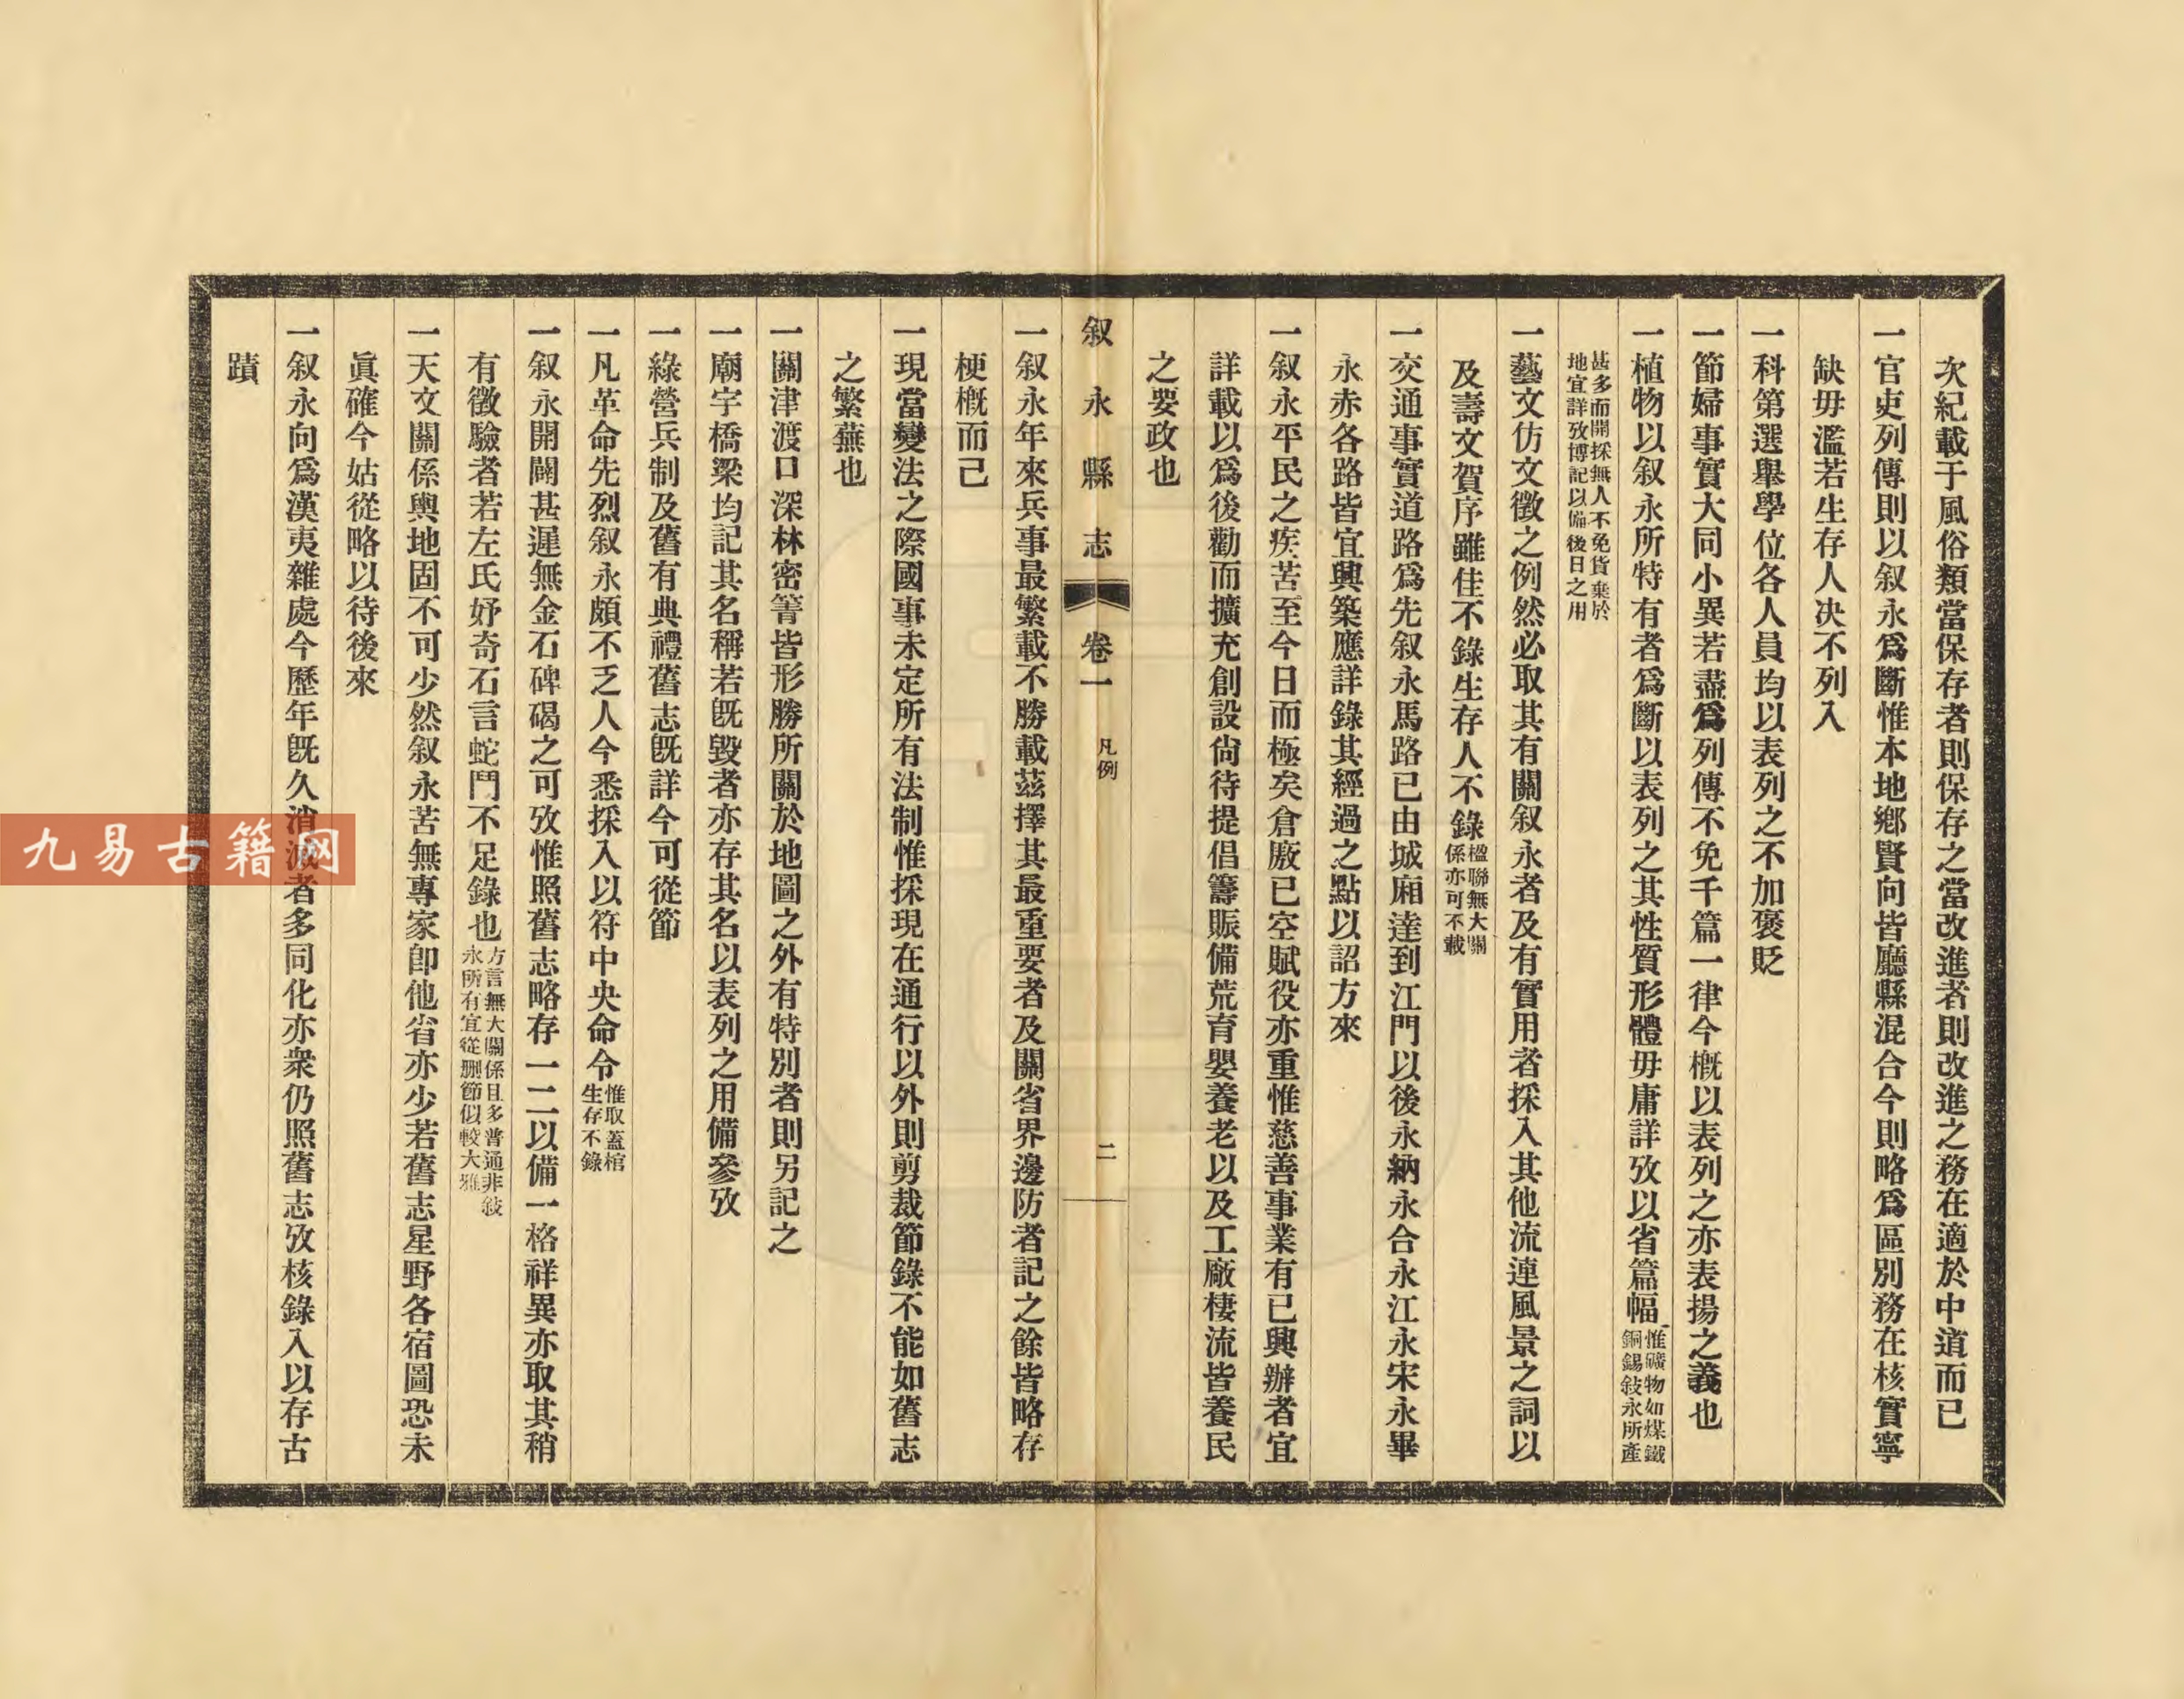 次紀載于風俗類當保存者則保存之當改進者則改進之務在適於中道而已
一官吏列傳則以叙永爲斷惟本地鄕賢向皆廳縣混合今則略爲區別務在核實寧
缺毋濫若生存人决不列入
一科第選舉學位各人員均以表列之不加褒貶
一節婦事實大同小異若盡爲列傳不免千篇一律今概以表列之亦表揚之義也
一植物以叙永所特有者爲斷以表列之其性質形體毋庸詳攷以省篇幅惟礦物如煤鐵
銅錫敍永所產
甚多而開採無人不免貨棄於
地宜詳攷博記以備後日之用
一藝文仿文徵之例然必取其有關叙永者及有實用者採入其他流連風景之詞以
及壽文賀序雖佳不錄生存人不錄楹聯無大關
係亦可不載
一交通事實道路爲先叙永馬路已由城廂達到江門以後永納永合永江永宋永畢
永赤各路皆宜興築應詳錄其經過之點以詔方來
一叙永平民之疾苦至今日而極矣倉廒已空賦役亦重惟慈善事業有已興辦者宜
詳載以爲後勸而擴充創設尙待提倡籌賑備荒育嬰養老以及工廠棲流皆養民
之要政也
叙永縣志 卷一 凡例 二
一叙永年來兵事最繁載不勝載茲擇其最重要者及關省界邊防者記之餘皆略存
梗概而已
一現當變法之際國事未定所有法制惟採現在通行以外則剪裁節錄不能如舊志
之繁蕪也
一關津渡口深林密箐皆形勝所關於地圖之外有特別者則另記之
一廟宇橋梁均記其名稱若旣毀者亦存其名以表列之用備參攷
一綠營兵制及舊有典禮舊志旣詳今可從節
一凡革命先烈叙永頗不乏人今悉採入以符中央命令惟取蓋棺
生存不錄
一叙永開闢甚遲無金石碑碣之可攷惟照舊志略存一二以備一格祥異亦取其稍
有徵驗者若左氏妤奇石言蛇鬥不足錄也方言無大關係且多普通非敍
永所有宜從刪節似較大雅
一天文關係輿地固不可少然叙永苦無專家卽他省亦少若舊志星野各宿圖恐未
眞確今姑從略以待後來
一叙永向爲漢夷雜處今歷年旣久消滅者多同化亦衆仍照舊志攷核錄入以存古
蹟
九易古籍网